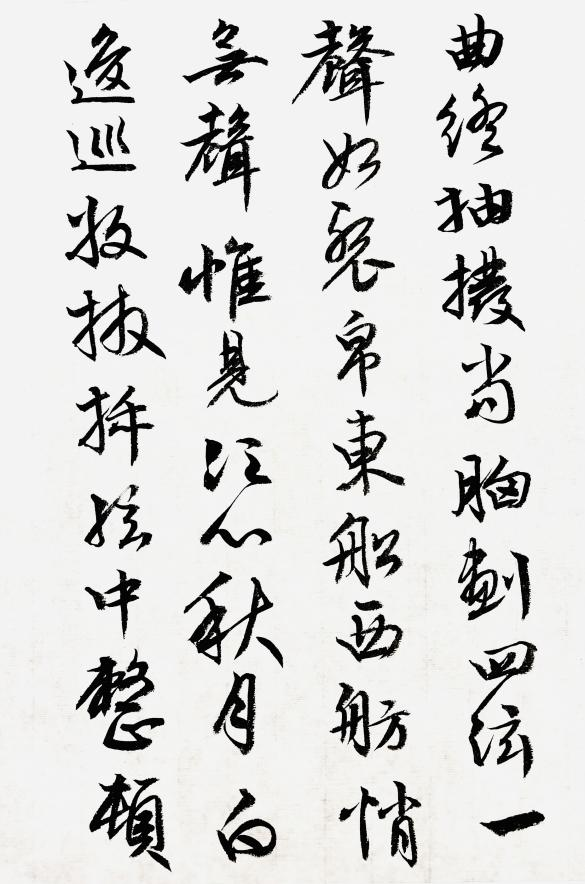 曲終抽撥當胸劃四弦一
聲如裂帛東船西舫悄
無聲惟見江心秋月白
逡巡收撥插弦中整頓